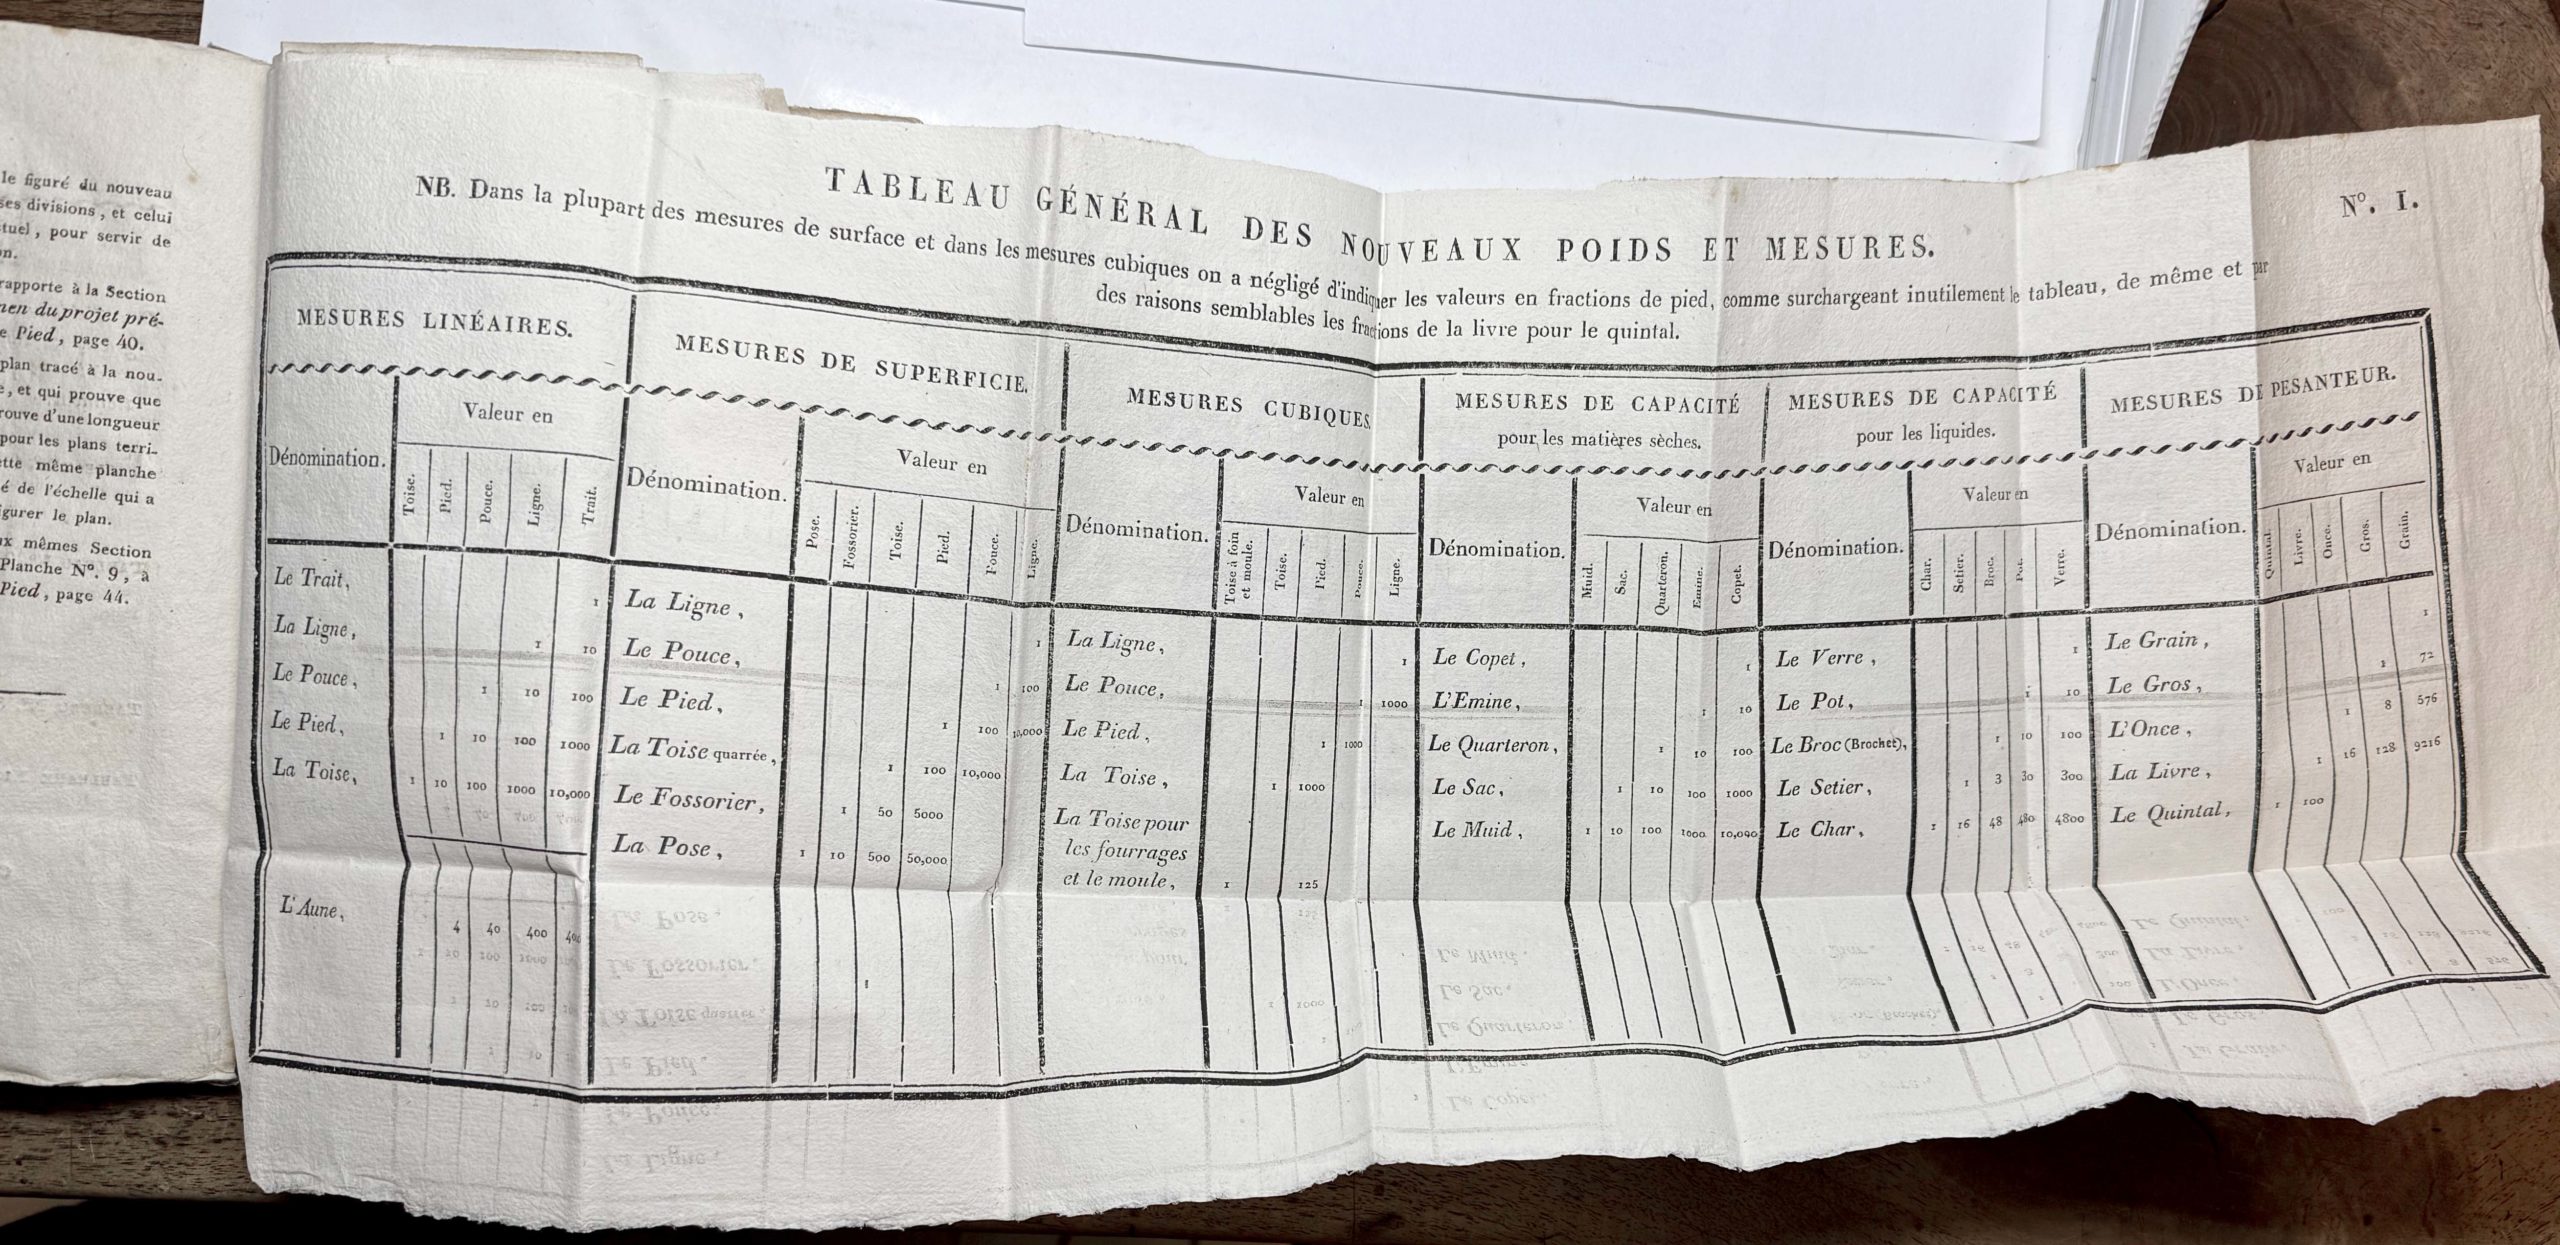 le figuré du nouveau
ses divisions, et celui
tuel, pour servir de
n.
rapporte à la Section
men du projet pré-
e Pied, page 40.
plan tracé à la nou-
e, et qui prouve que
rouve d'une longueur
pour les plans terri-
ette même planche
é de l'échelle qui a
igurer le plan.
ux mêmes Section
Planche N°. 9, à
Pied, page 44.
N°. I.
TABLEAU GÉNÉRAL DES NOUVEAUX POIDS ET MESURES.
NB. Dans la plupart des mesures de surface et dans les mesures cubiques on a négligé d'indiquer les valeurs en fractions de pied, comme surchargeant inutilement le tableau, de même et par
des raisons semblables les fractions de la livre pour le quintal.
MESURES LINÉAIRES.
Dénomination.
Valeur en
Toise. Pied. Pouce. Ligne. Trait.
Le Trait, 1
La Ligne, 1 10
Le Pouce, 1 10 100
Le Pied, 1 10 100 1000
La Toise, 1 10 100 1000 10,000
L'Aune, 4 40 400
MESURES DE SUPERFICIE.
Dénomination.
Valeur en
Pose. Fossorier. Toise. Pied. Pouce. Ligne.
La Ligne, 1
Le Pouce, 1 100
Le Pied, 1 100 10,000
La Toise quarrée, 1 100 10,000
Le Fossorier, 1 50 5000
La Pose, 1 10 500 50,000
MESURES CUBIQUES.
Dénomination.
Valeur en
Toise à foin et moule. Toise. Pied. Pouce. Ligne.
La Ligne, 1
Le Pouce, 1 1000
Le Pied, 1 1000
La Toise, 1 1000
La Toise pour
les fourrages
et le moule, 1 125
MESURES DE CAPACITÉ
pour les matières sèches.
Dénomination.
Valeur en
Muid. Sac. Quarteron. Emine. Copet.
Le Copet, 1
L'Emine, 1 10
Le Quarteron, 1 10 100
Le Sac, 1 10 100 1000
Le Muid, 1 10 100 1000 10,000
MESURES DE CAPACITÉ
pour les liquides.
Dénomination.
Valeur en
Char. Setier. Broc. Pot. Verre.
Le Verre, 1
Le Pot, 1 10
Le Broc (Brochet), 1 10 100
Le Setier, 1 3 30 300
Le Char, 1 16 48 480 4800
MESURES DE PESANTEUR.
Dénomination.
Valeur en
Quintal. Livre. Once. Gros. Grain.
Le Grain, 1
Le Gros, 1 72
L'Once, 1 8 576
La Livre, 1 16 128 9216
Le Quintal, 1 100